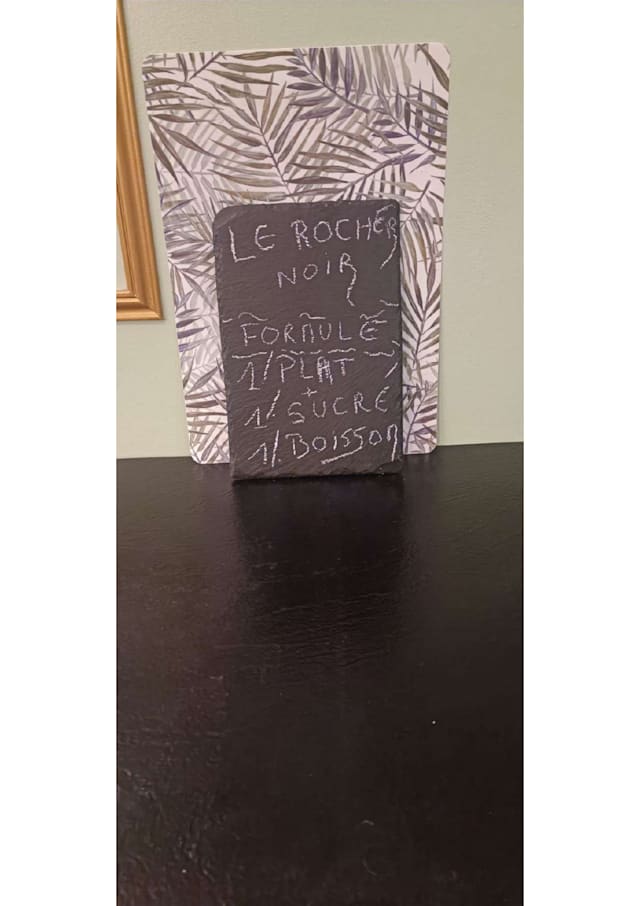 LE ROCHER
NOIR
FORMULE
1/PLAT
+
1/SUCRE
1/.BOISSON